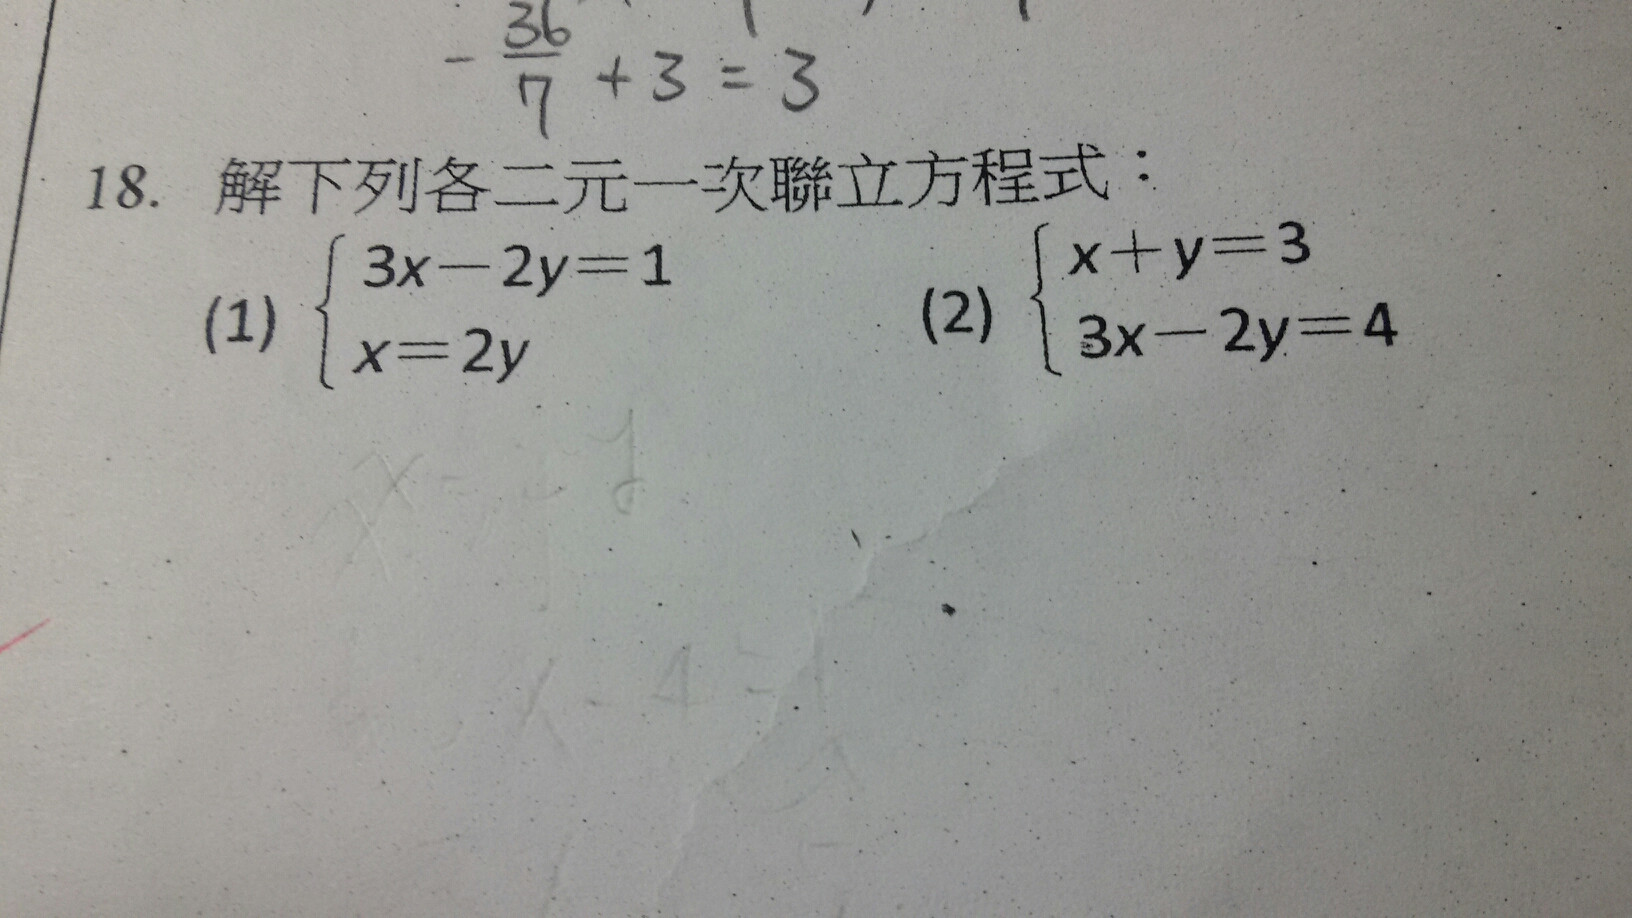 - 36/7 + 3 = 3
18. 解下列各二元一次聯立方程式：
(1) { 3x－2y＝1
x＝2y
(2) { x＋y＝3
3x－2y＝4